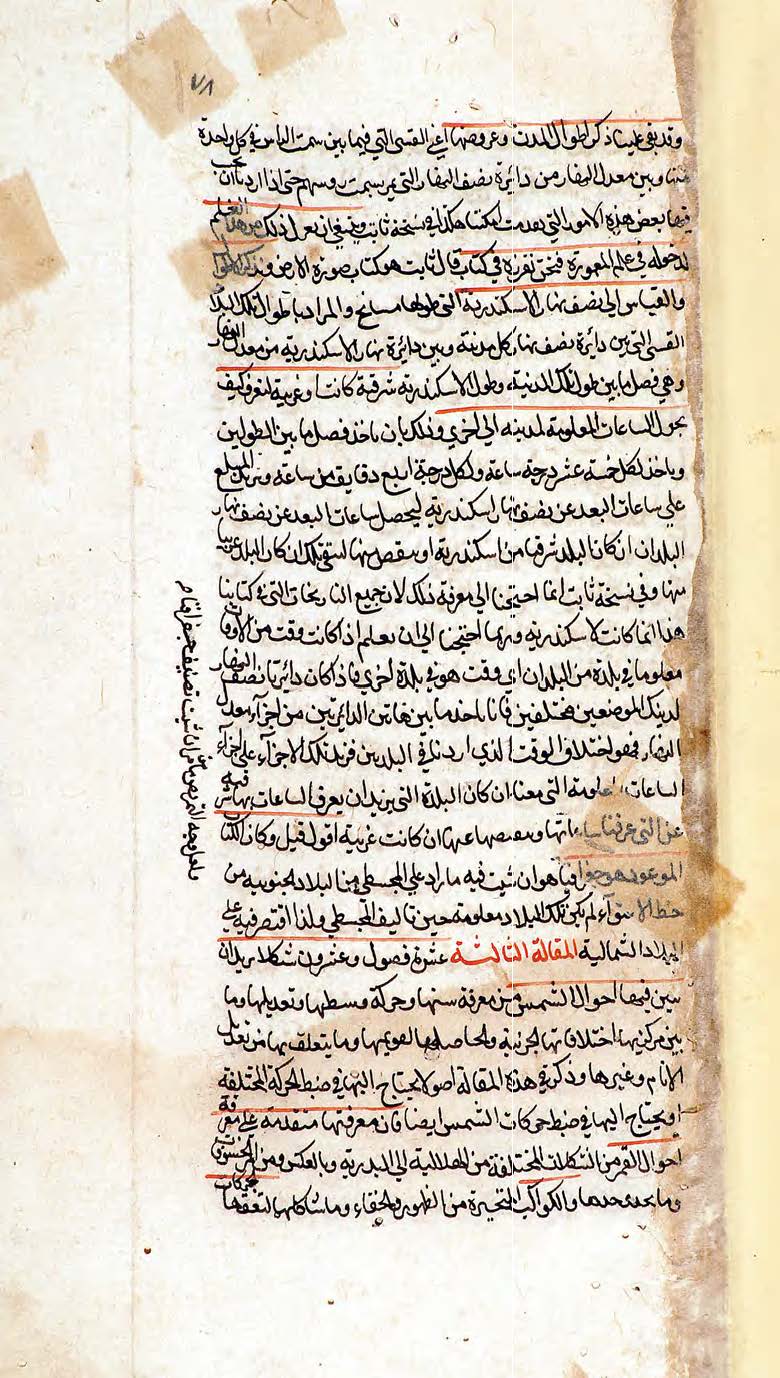 ٧٨
وقد بقي علينا ذكر اطوال المدن وعروضها اعني القسي التي فيما بين سمت الراس في كل واحدة
منها وبين معدل النهار من دائرة نصف النهار التي تمر بسمت روسهم حتى اذا اردنا ان يحسب
فيها بعض هذه الامور التي تقدمت امكننا هكذا في نسخة ثابت وينبغي ان نعزل ذلك من هذا العلم
لدخوله في علم المعمورة فنحن نفرزه في كتاب قال ثابت هو كتاب صورة الارض ونذكر الاطوال
والقياس الى نصف نهار الاسكندرية التي طولها والمراد باطوال تلك البلاد
القسي التي بين دائرة نصف نهار كل مدينة وبين دائرة نهار الاسكندرية من معدل النهار
وهي فصل ما بين طول تلك المدينة وطول الاسكندرية شرقية كانت او غربية لنعرف كيف
نحول الساعات المعلومة لمدينة الى اخرى وذلك بان ناخذ فصل ما بين الطولين
وياخذ لكل خمسة عشر درجة ساعة ولكل درجة اربع دقايق من ساعة ويزيد المبلغ
على ساعات البعد عن نصف نهار اسكندرية ليحصل ساعات البعد عن نصف نهار
البلدان ان كان البلد شرقيا من اسكندرية او ينقص منها ان كان البلد غربيا
منها وفي نسخة ثابت انما احتيجنا الى معرفة ذلك لان جميع التاريخات التي في كتابنا
هذا انما كانت لاسكندرية وربما احتيجنا الى ان يعلم اذا كانت وقت من الاوقات
معلوما في بلدة من البلدان اي وقت هو في بلدة اخرى فاذا كان دائرتا نصف النهار
لدينك الموضعين مختلفين فانا ناخذ ما بين هاتين الدائرتين من اجزاء معدل
النهار فهو اختلاف الوقت الذي اردنا في البلدين فنزيد تلك الاجزاء على اجزاء
الساعات المعلومة التي معنا ان كان البلدة التي نريد ان يعرف الساعات بها شرقية
عن التي عرفنا ساعاتها وننقصها عنها ان كانت غربية اقول قيل وكان الكتاب
الموعود هو جغرافيا هو ان ثبت فيه ما زاد على المجسطي من البلاد الجنوبية من
خط الاستواء لم يكن تلك البلاد معلومة حين تاليف المجسطي ولذا اقتصر فيه على
البلاد الشمالية المقالة الثالثة عشرة فصول وعشرون شكلا يريد ان
يبين فيها احوال الشمس من معرفة سنتها وحركة وسطها وتعديلها وما
بين مركزيها واختلافاتها الجزئية والحاصل لها لتقويمها وما يتعلق بها من تعديل
الايام وغيرها وذكر في هذه المقالة اصولا يحتاج اليها في ضبط الحركة المختلفة
اذ يحتاج اليها في ضبط حركات الشمس ايضا فان معرفتها متقدمة على معرفة
احوال القمر من الشكلات المختلفة من الهلالية الى البدرية وبالعكس ومن الخسوفات
وما يجدى حدها والكواكب المتحيرة من الظهور والخفاء وما شاكلها لتعلقها بحركات